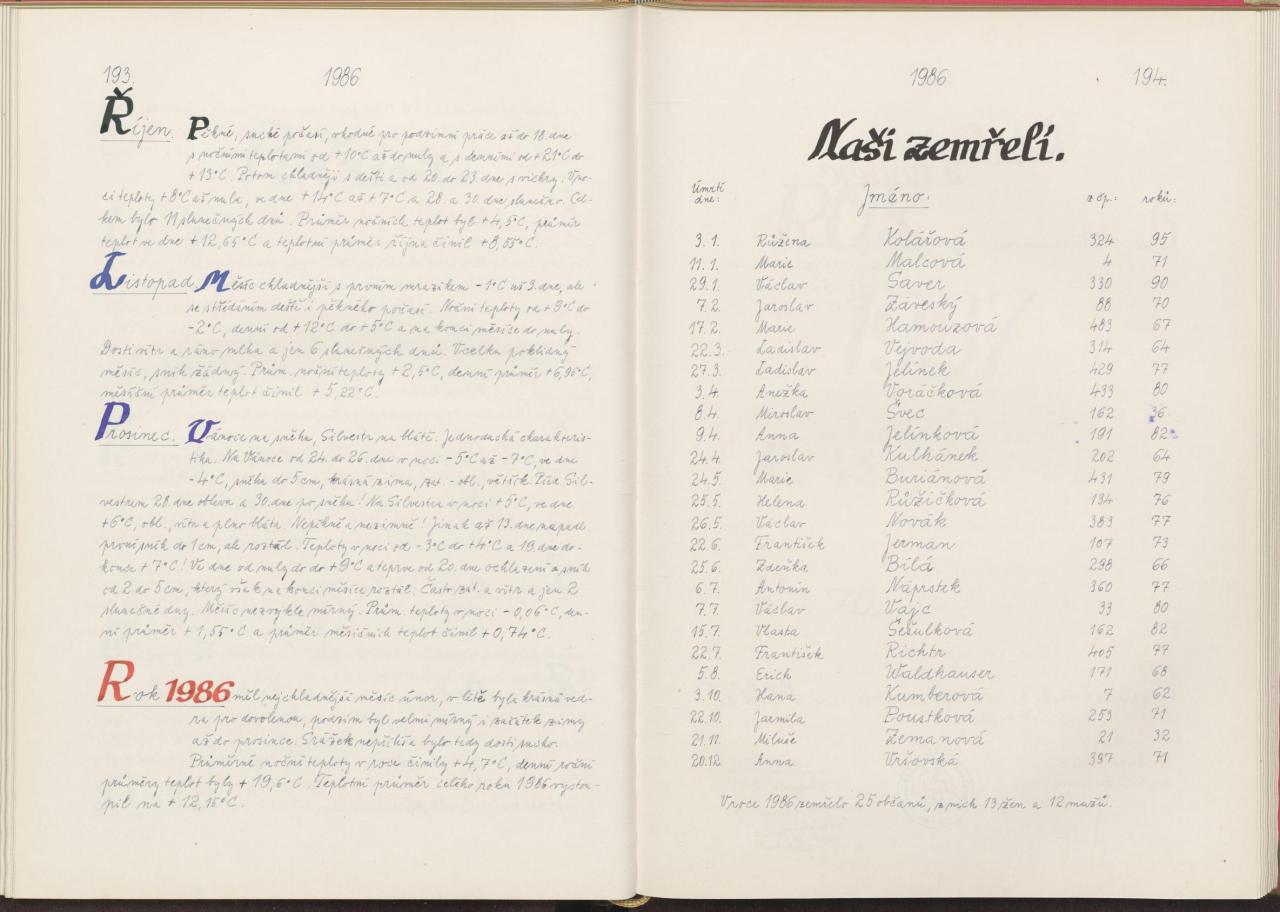 193. 1986
Říjen. Pěkné, suché počasí, vhodné pro podzimní práce až do 18. dne
s nočními teplotami od +10°C až do nuly a s denními od +21°C do
+13°C. Potom chladněji s dešti a od 20. do 23. dne s vichry. V no-
ci teploty +8°C až nula, ve dne +14°C až +7°C a 28. a 30. dne slunečno. Cel-
kem bylo 11 slunečných dnů. Průměr nočních teplot byl +4,5°C, průměr
teplot ve dne +12,65°C a teplotní průměr října činil +8,55°C.
Listopad Měsíc chladnější s prvním mrazíkem -1°C už 3. dne, ale
se střídáním deště i pěkného počasí. Noční teploty od +9°C do
-2°C, denní od +12°C do +5°C a na konci měsíce do nuly.
Dosti vítr a ráno mlha a jen 6 slunečných dnů. Vcelku poklidný
měsíc, sníh žádný. Prům. noční teploty +2,5°C, denní průměr +6,95°C,
měsíční průměr teplot činil +5,22°C.
Prosinec. Vánoce na sněhu, Silvestr na blátě. Jednoduchá charakteris-
tika. Na Vánoce od 24. do 26. dne v noci -5°C až -7°C, ve dne
-4°C, sněhu do 5 cm, krásná zima, zat. - obl., větřík. Před Sil-
vestrem 28. dne obleva a 30. dne po sněhu! Na Silvestra v noci +5°C, ve dne
+6°C, obl., vítr a plno bláta. Nepěkně a nezimně! Jinak až 13. dne napadl
první sníh do 1 cm, ale roztál. Teploty v noci od -3°C do +4°C a 19. dne do-
konce +7°C! Ve dne od nuly do do +9°C a teprve od 20. dne ochlazení a sníh
od 2 do 5 cm, který však na konci měsíce roztál. Často zat. a vítr a jen 2
slunečné dny. Měsíc nezvykle mírný. Prům. teploty v noci -0,06°C, den-
ní průměr +1,55°C a průměr měsíčních teplot činil +0,74°C.
Rok 1986 měl nejchladnější měsíc únor, v létě byla krásná ved-
ra pro dovolenou, podzim byl velmi mírný i začátek zimy
až do prosince. Srážek nepříliš a bylo tedy dosti sucho.
Průměrné noční teploty v roce činily +4,7°C, denní roční
průměry teplot byly +19,6°C. Teplotní průměr celého roku 1986 vystou-
pil na +12,15°C.
1986 194.
Naši zemřelí.
Úmrtí dne: Jméno: z čp.: roků:
3.1. Růžena Kolářová 324 95
11.1. Marie Malcová 4 71
29.1. Václav Saver 330 90
7.2. Jaroslav Záveský 88 70
17.2. Marie Hamouzová 483 67
22.3. Ladislav Vejvoda 314 64
27.3. Ladislav Jelínek 429 77
3.4. Anežka Voráčková 433 80
8.4. Miroslav Švec 162 36
9.4. Anna Jelínková 191 82
24.4. Jaroslav Kulhánek 202 64
24.5. Marie Buriánová 431 79
25.5. Helena Růžičková 134 76
26.5. Václav Novák 383 77
22.6. František Jerman 107 73
25.6. Zdeňka Bílá 298 66
6.7. Antonín Náprstek 360 77
7.7. Václav Vajc 33 80
15.7. Vlasta Šešulková 162 82
22.7. František Richtr 405 77
5.8. Erich Waldhauser 171 68
3.10. Hana Kumberová 7 62
22.10. Jarmila Poustková 253 71
21.11. Miluše Zemanová 21 32
20.12. Anna Vršovská 397 71
V roce 1986 zemřelo 25 občanů, z nich 13 žen a 12 mužů.